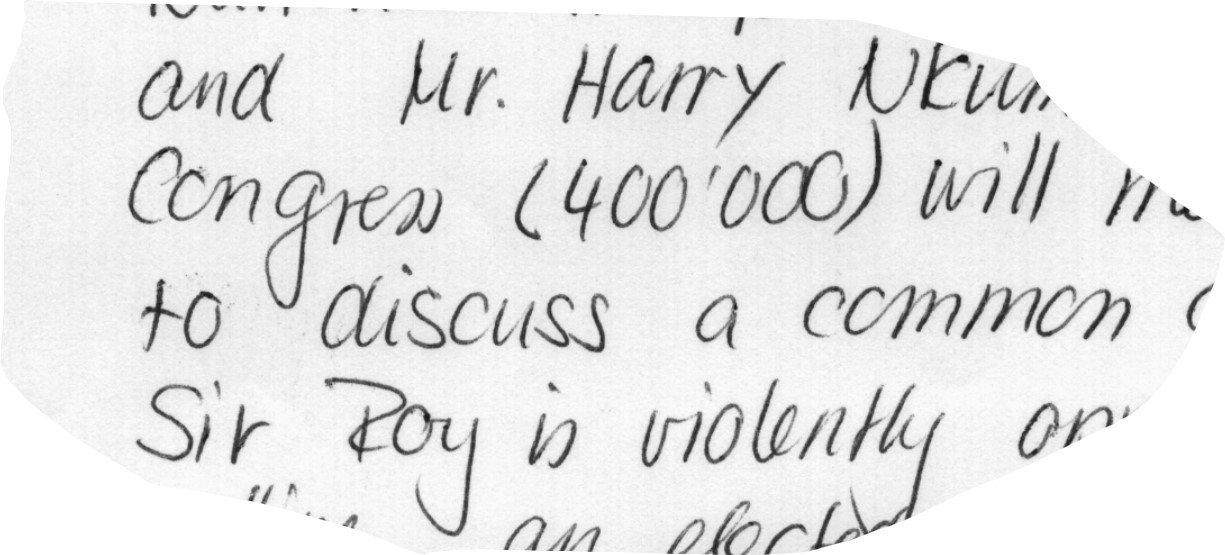 and Mr. Harry
Congress (400'000) will
to discuss a common
Sir Roy is violently
an elected